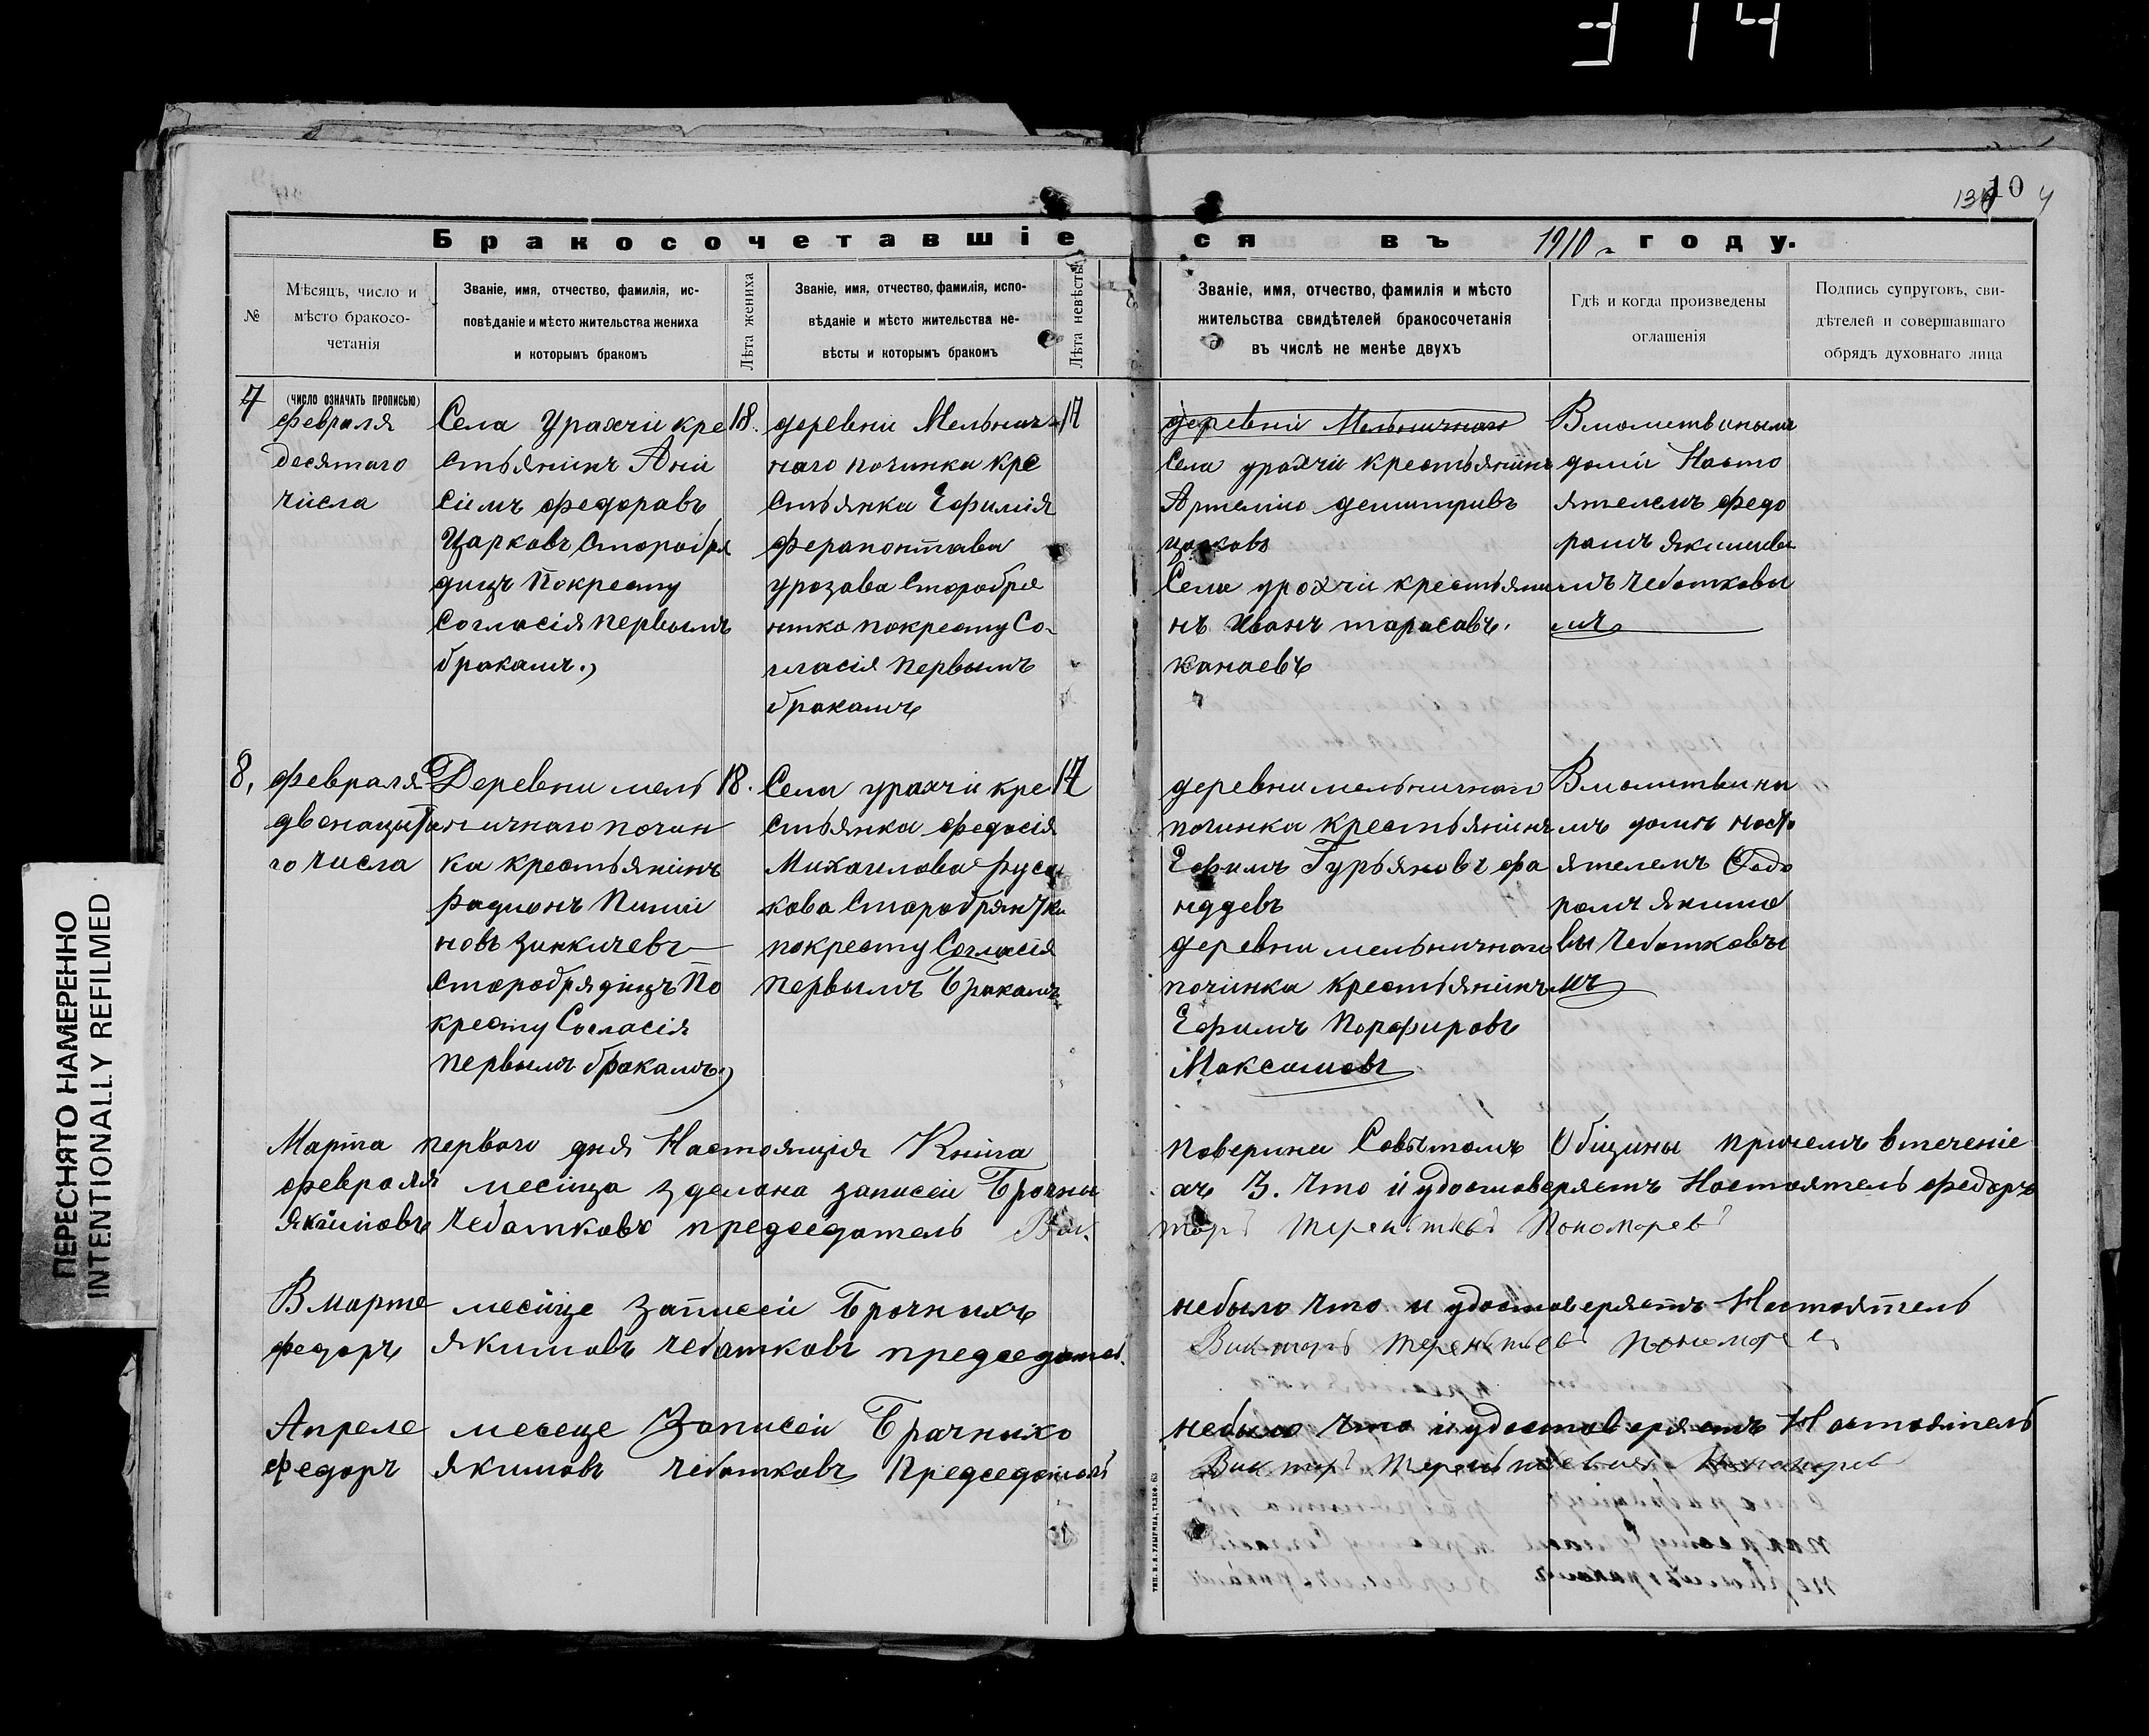 314
10
Бракосочетавшіеся въ 1910 г году.
№
Мѣсяцъ, число и
мѣсто бракосо-
четанія
Званіе, имя, отчество, фамилія, ис-
повѣданіе и мѣсто жительства жениха
и которымъ бракомъ
Лѣта жениха
Званіе, имя, отчество, фамилія, испо-
вѣданіе и мѣсто жительства не-
вѣсты и которымъ бракомъ
Лѣта невѣсты
Званіе, имя, отчество, фамилія и мѣсто
жительства свидѣтелей бракосочетанія
въ числѣ не менѣе двухъ
Гдѣ и когда произведены
оглашенія
Подпись супруговъ, сви-
дѣтелей и совершавшаго
обрядъ духовнаго лица
7
(число означать прописью)
февраля
десятаго
числа
Села Урахчи кре
стьянинъ Ани
симъ федоравъ
Царковъ, Старобря
дицъ Покресту
Согласія первымъ
бракамъ.
18.
деревни Мельнич
наго починка кре
стьянка Ефимія
ферапонтава
урозава Старобря
нтка покресту Со-
гласія первымъ
бракамъ
17
деревни Мельничнаго
Села урахчи крестьянинъ
Артемию демитривъ
царковъ
Села урахчи крестьяни
нъ Иванъ тарасавъ
канаевъ
Вмолитвинымъ
доми Насто
ятелемъ федо
рамъ якимовы
мъ чебатковы
мъ
8,
февраля
двенацато
го числа
Деревни мель
ничнаго почин
ка крестьянинъ
Радионъ Пими
новъ Зинкичевъ
старобрядицъ По
кресту Согласія
первымъ бракамъ.
18.
Села урахчи кре
стьянка федосія
Михаилова Руса
кова Старобрянтка
покресту Согласія
первымъ Бракамъ
17
деревни мельничнаго
починка крестьянинъ
Ефимъ Гурьяновъ фа
ддевъ
деревни мельничнаго
починка крестьянинъ
Ефимъ Порфировъ
Максимовъ
Вмолитвины
мъ доми насто
ятелемъ Федо
рамъ якимо
вы чебатковы
мъ
Марта первого дня Настоящія Книга поверина Совѣтомъ Общины причемъ втеченіе
февраля месяца зделона записей Брачны ахъ 3. Что и удостоверяетъ Настоятель федоръ
Якимовъ Чебатковъ председатель Вик тор Терентьевъ Пономоревъ
В марте месяце записей Брочныхъ небыло что и удостоверяетъ Настоятель
федоръ Якимовъ Чебатковъ председатель Викторъ Терентьевъ Пономорев
Апреле месеце Записей Брачныхъ небыло что и удостоверяетъ Настоятель
федоръ Якимовъ Чебатковъ Председатель Викторъ Терентьевъ Пономорев
ПЕРЕСНЯТО НАМЕРЕННО
INTENTIONALLY REFILMED